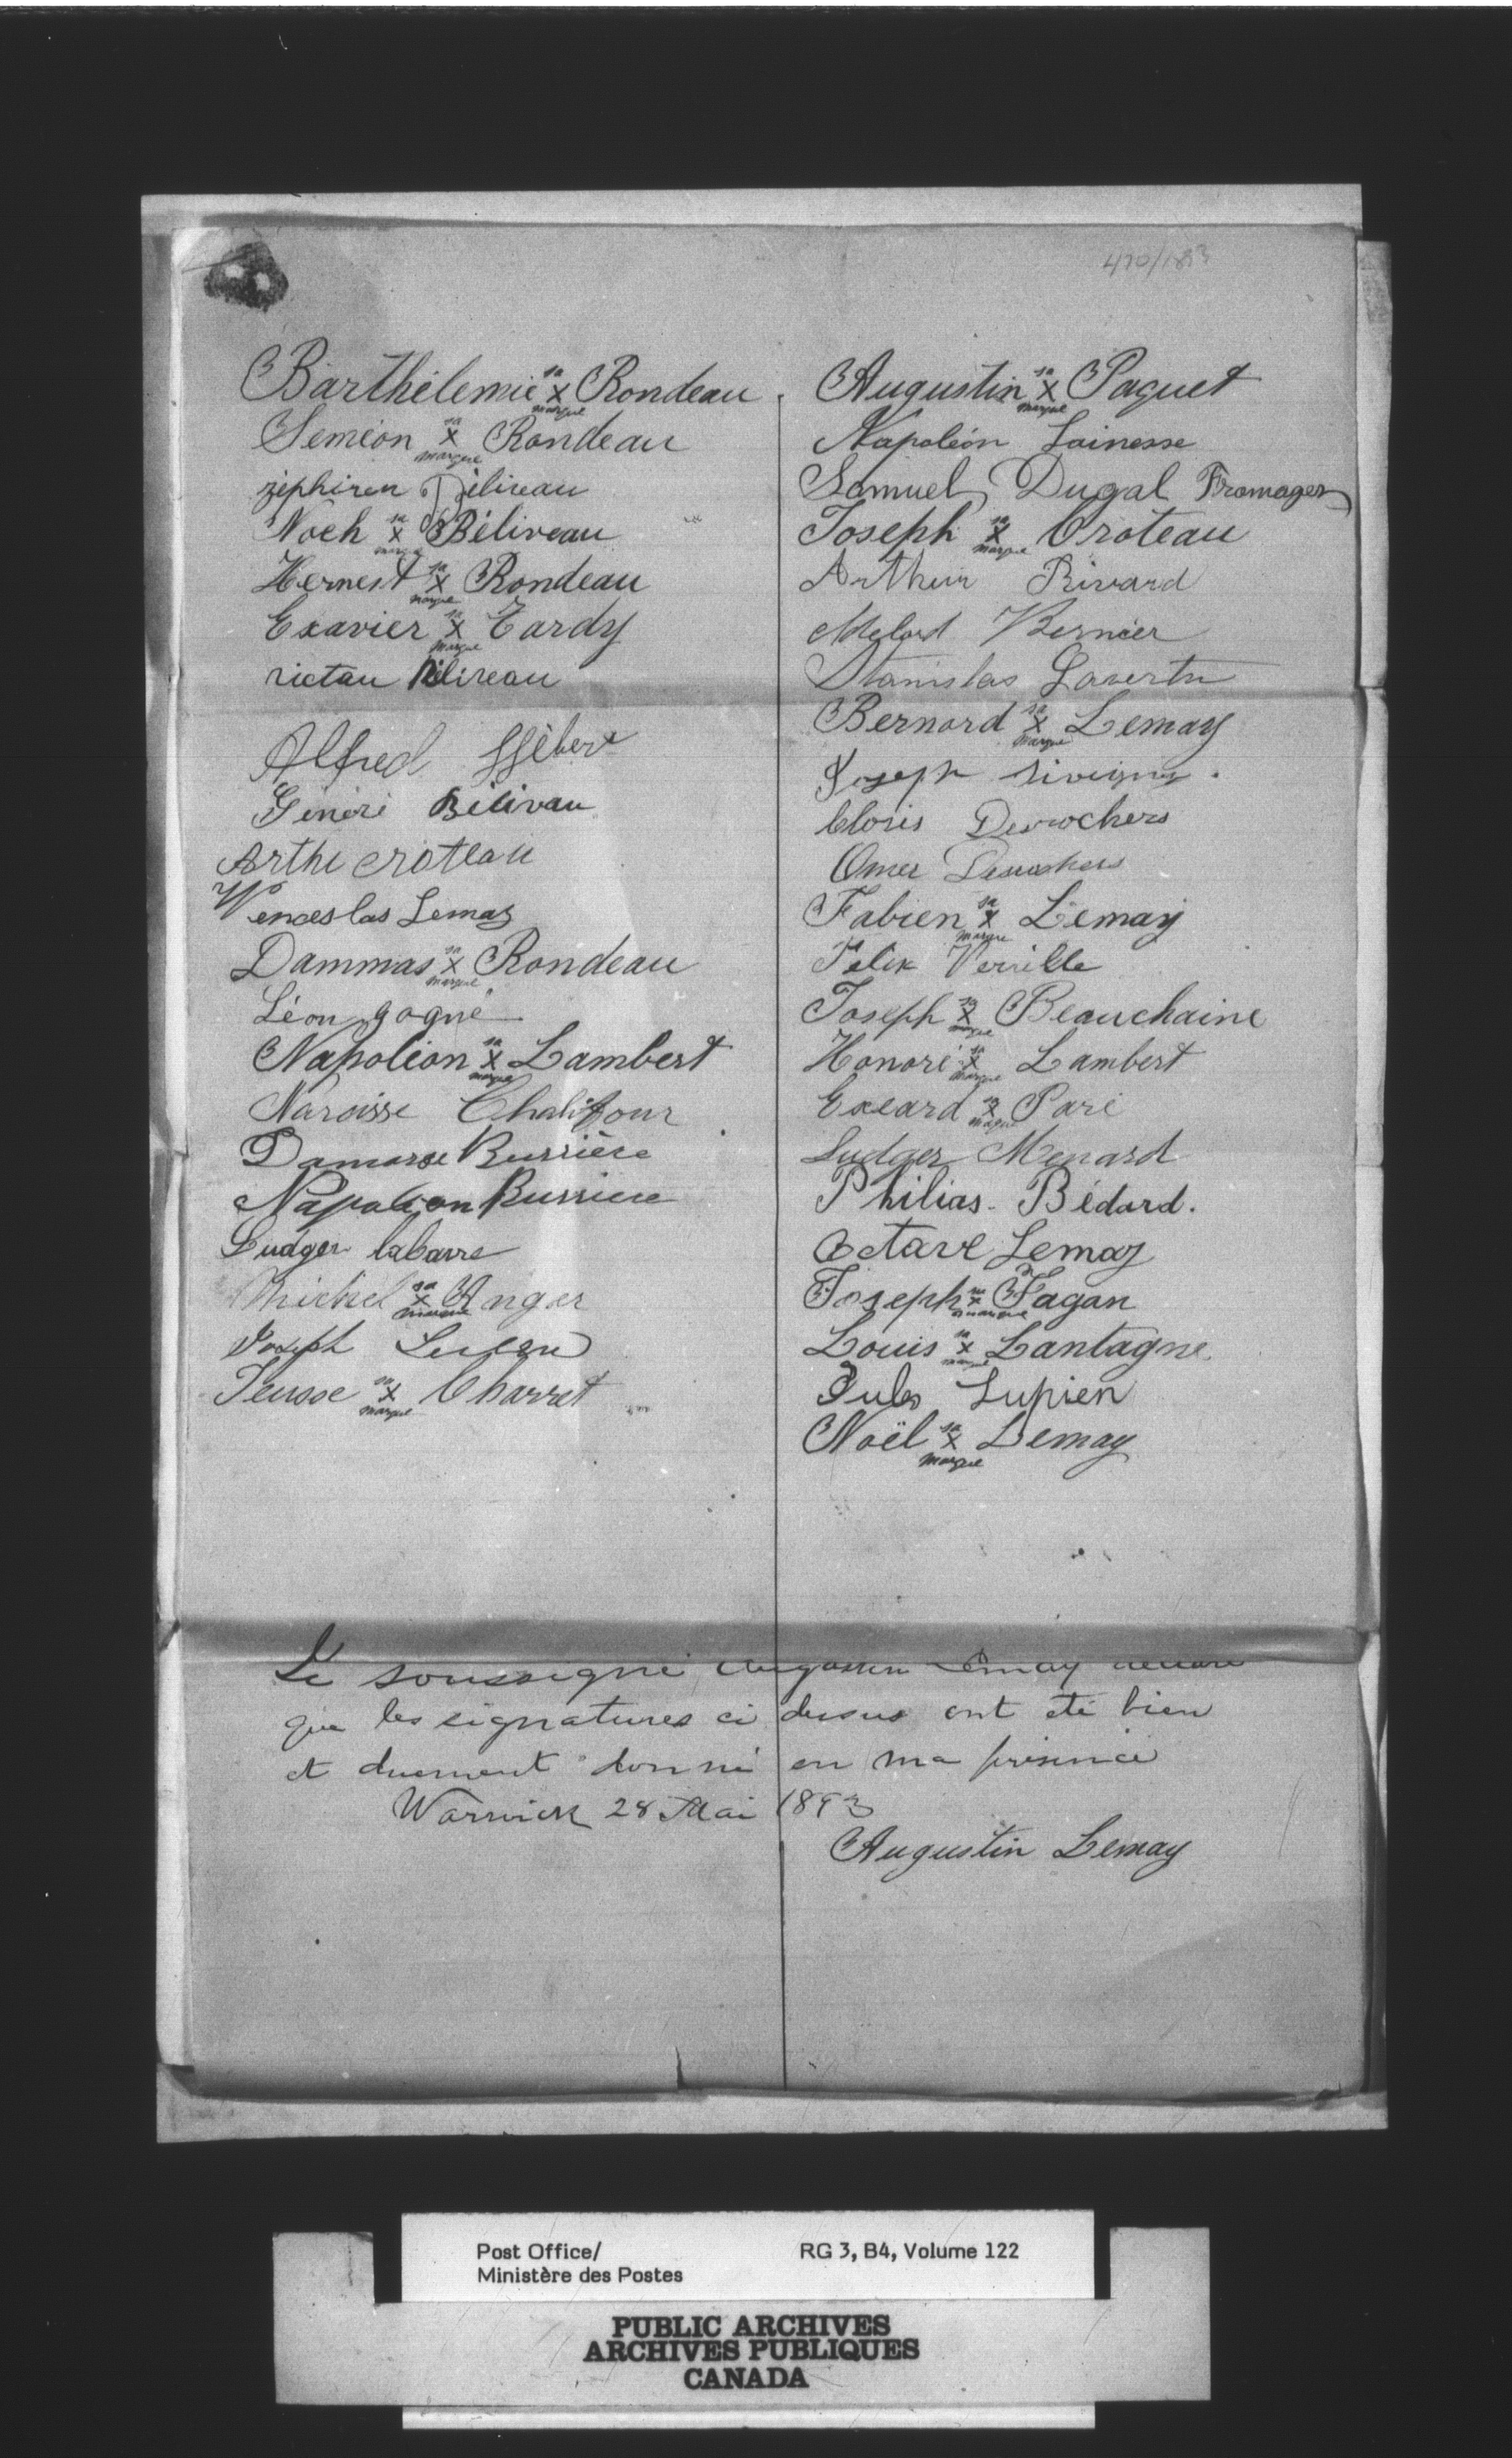 470/1893
Barthélemie sa X marque Rondeau
Seméon sa X marque Rondeau
zéphiren Béliveau
Noeh sa X marque Béliveau
Hernest sa X marque Rondeau
Exavier sa X marque Tardy
rictau Béliveau
Alfred Hébert
Généri Bélivau
Arthu croteau
Wenceslas Lemay
Dammas sa X marque Rondeau
Léon gagné
Napoléon sa X marque Lambert
Narcisse Chalifour
Damasse Burrière
Napoléon Burriere
Ludger labarre
Michel sa X marque Anger
Joseph
sa X marque Charret
Augustin sa X marque Paquet
Napoléon Lainesse
Samuel Dugal Fromager
Joseph sa X marque Croteau
Arthur Rivard
Adelard Bernier
Stanislas Lavertu
Bernard sa X marque Lemay
Joseph sivigny.
Cloris Desrochers
Omer Desrochers
Fabien sa X marque Lemay
Felix Verville
Joseph sa X marque Beauchaine
Honoré sa X marque Lambert
Exeard sa X marque Paré
Ludger Menard
Philias. Bédard.
Octave Lemay
Joseph sa X marque Fagan
Louis sa X marque Lantagne
Jules Lupien
Noël sa X marque Lemay
Le soussigné Augustin Lemay déclare
que les signatures ci dessus ont été bien
et duement donné en ma présence
Warwick 28 Mai 1893
Augustin Lemay
Post Office/
Ministère des Postes
RG 3, B4, Volume 122
PUBLIC ARCHIVES
ARCHIVES PUBLIQUES
CANADA